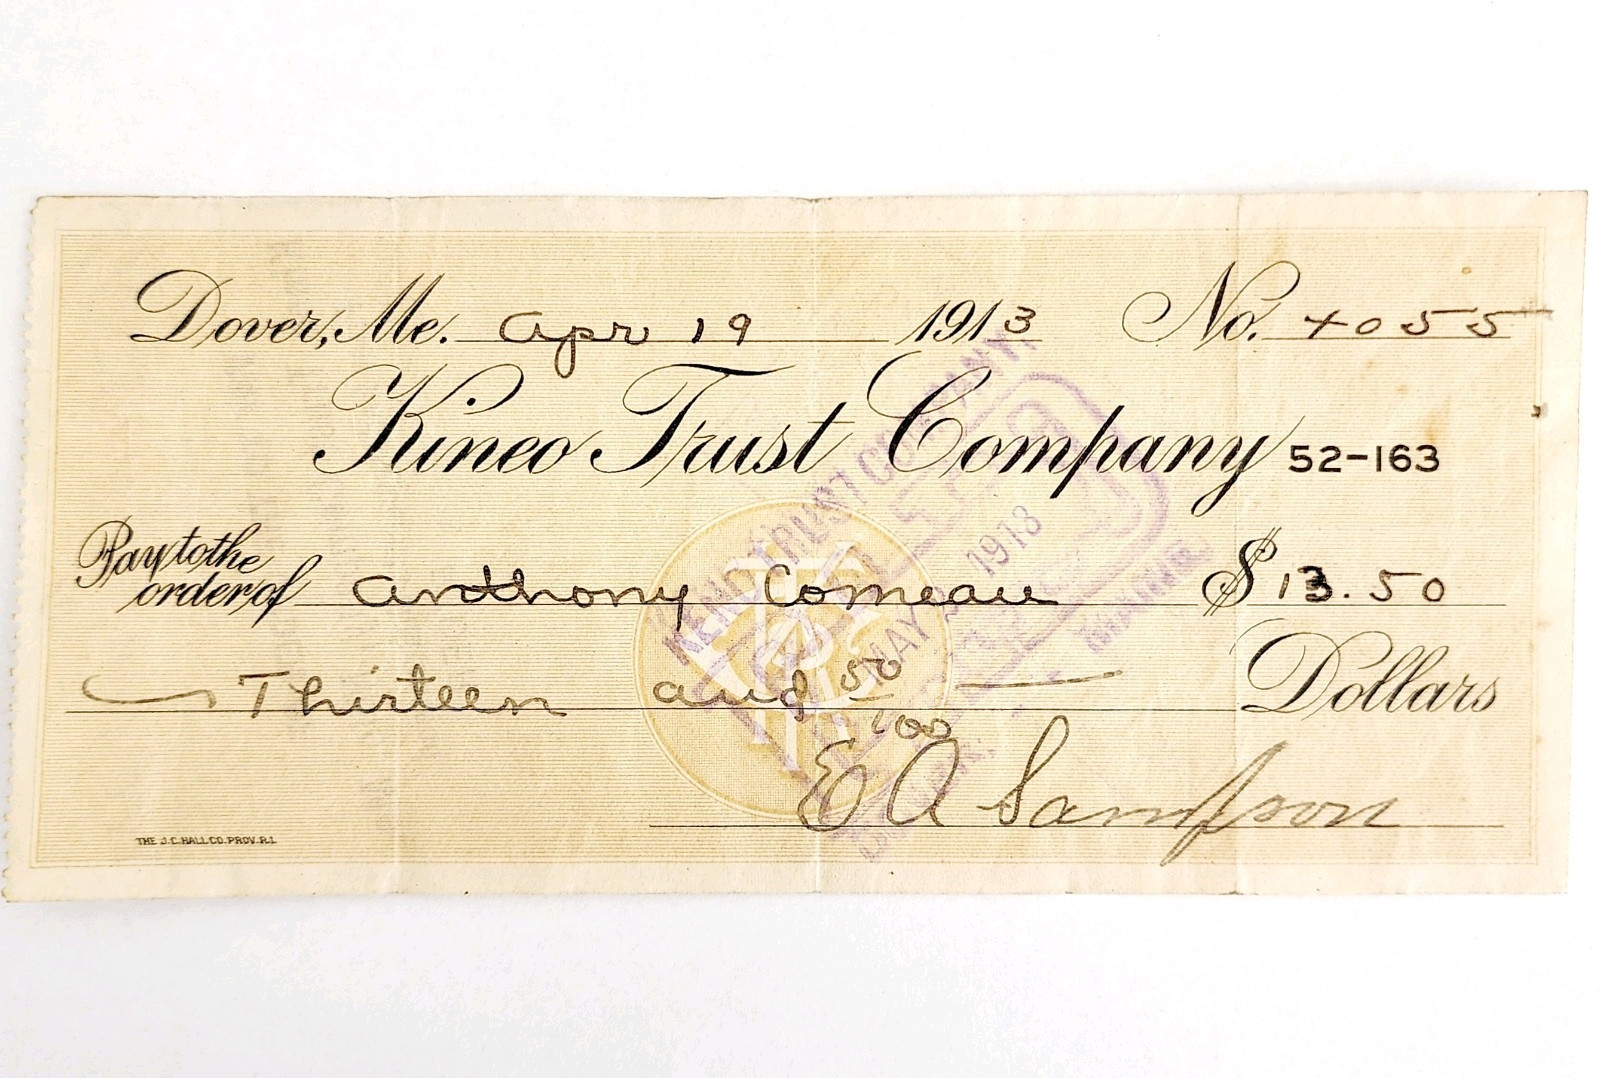 Dover, Me. Apr 19 1913 No. 4055
Kineo Trust Company 52-163
Pay to the
order of Anthony Comeau $13.50
Thirteen and 50/100 Dollars
E A Sampson
THE J.C. HALL CO. PROV. R.I.
KENO TRUST COMPANY,
MAY 1913
MAINE